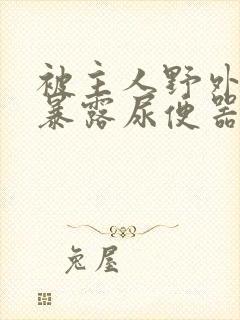 被主人野外
暴露尿便器
兔屋